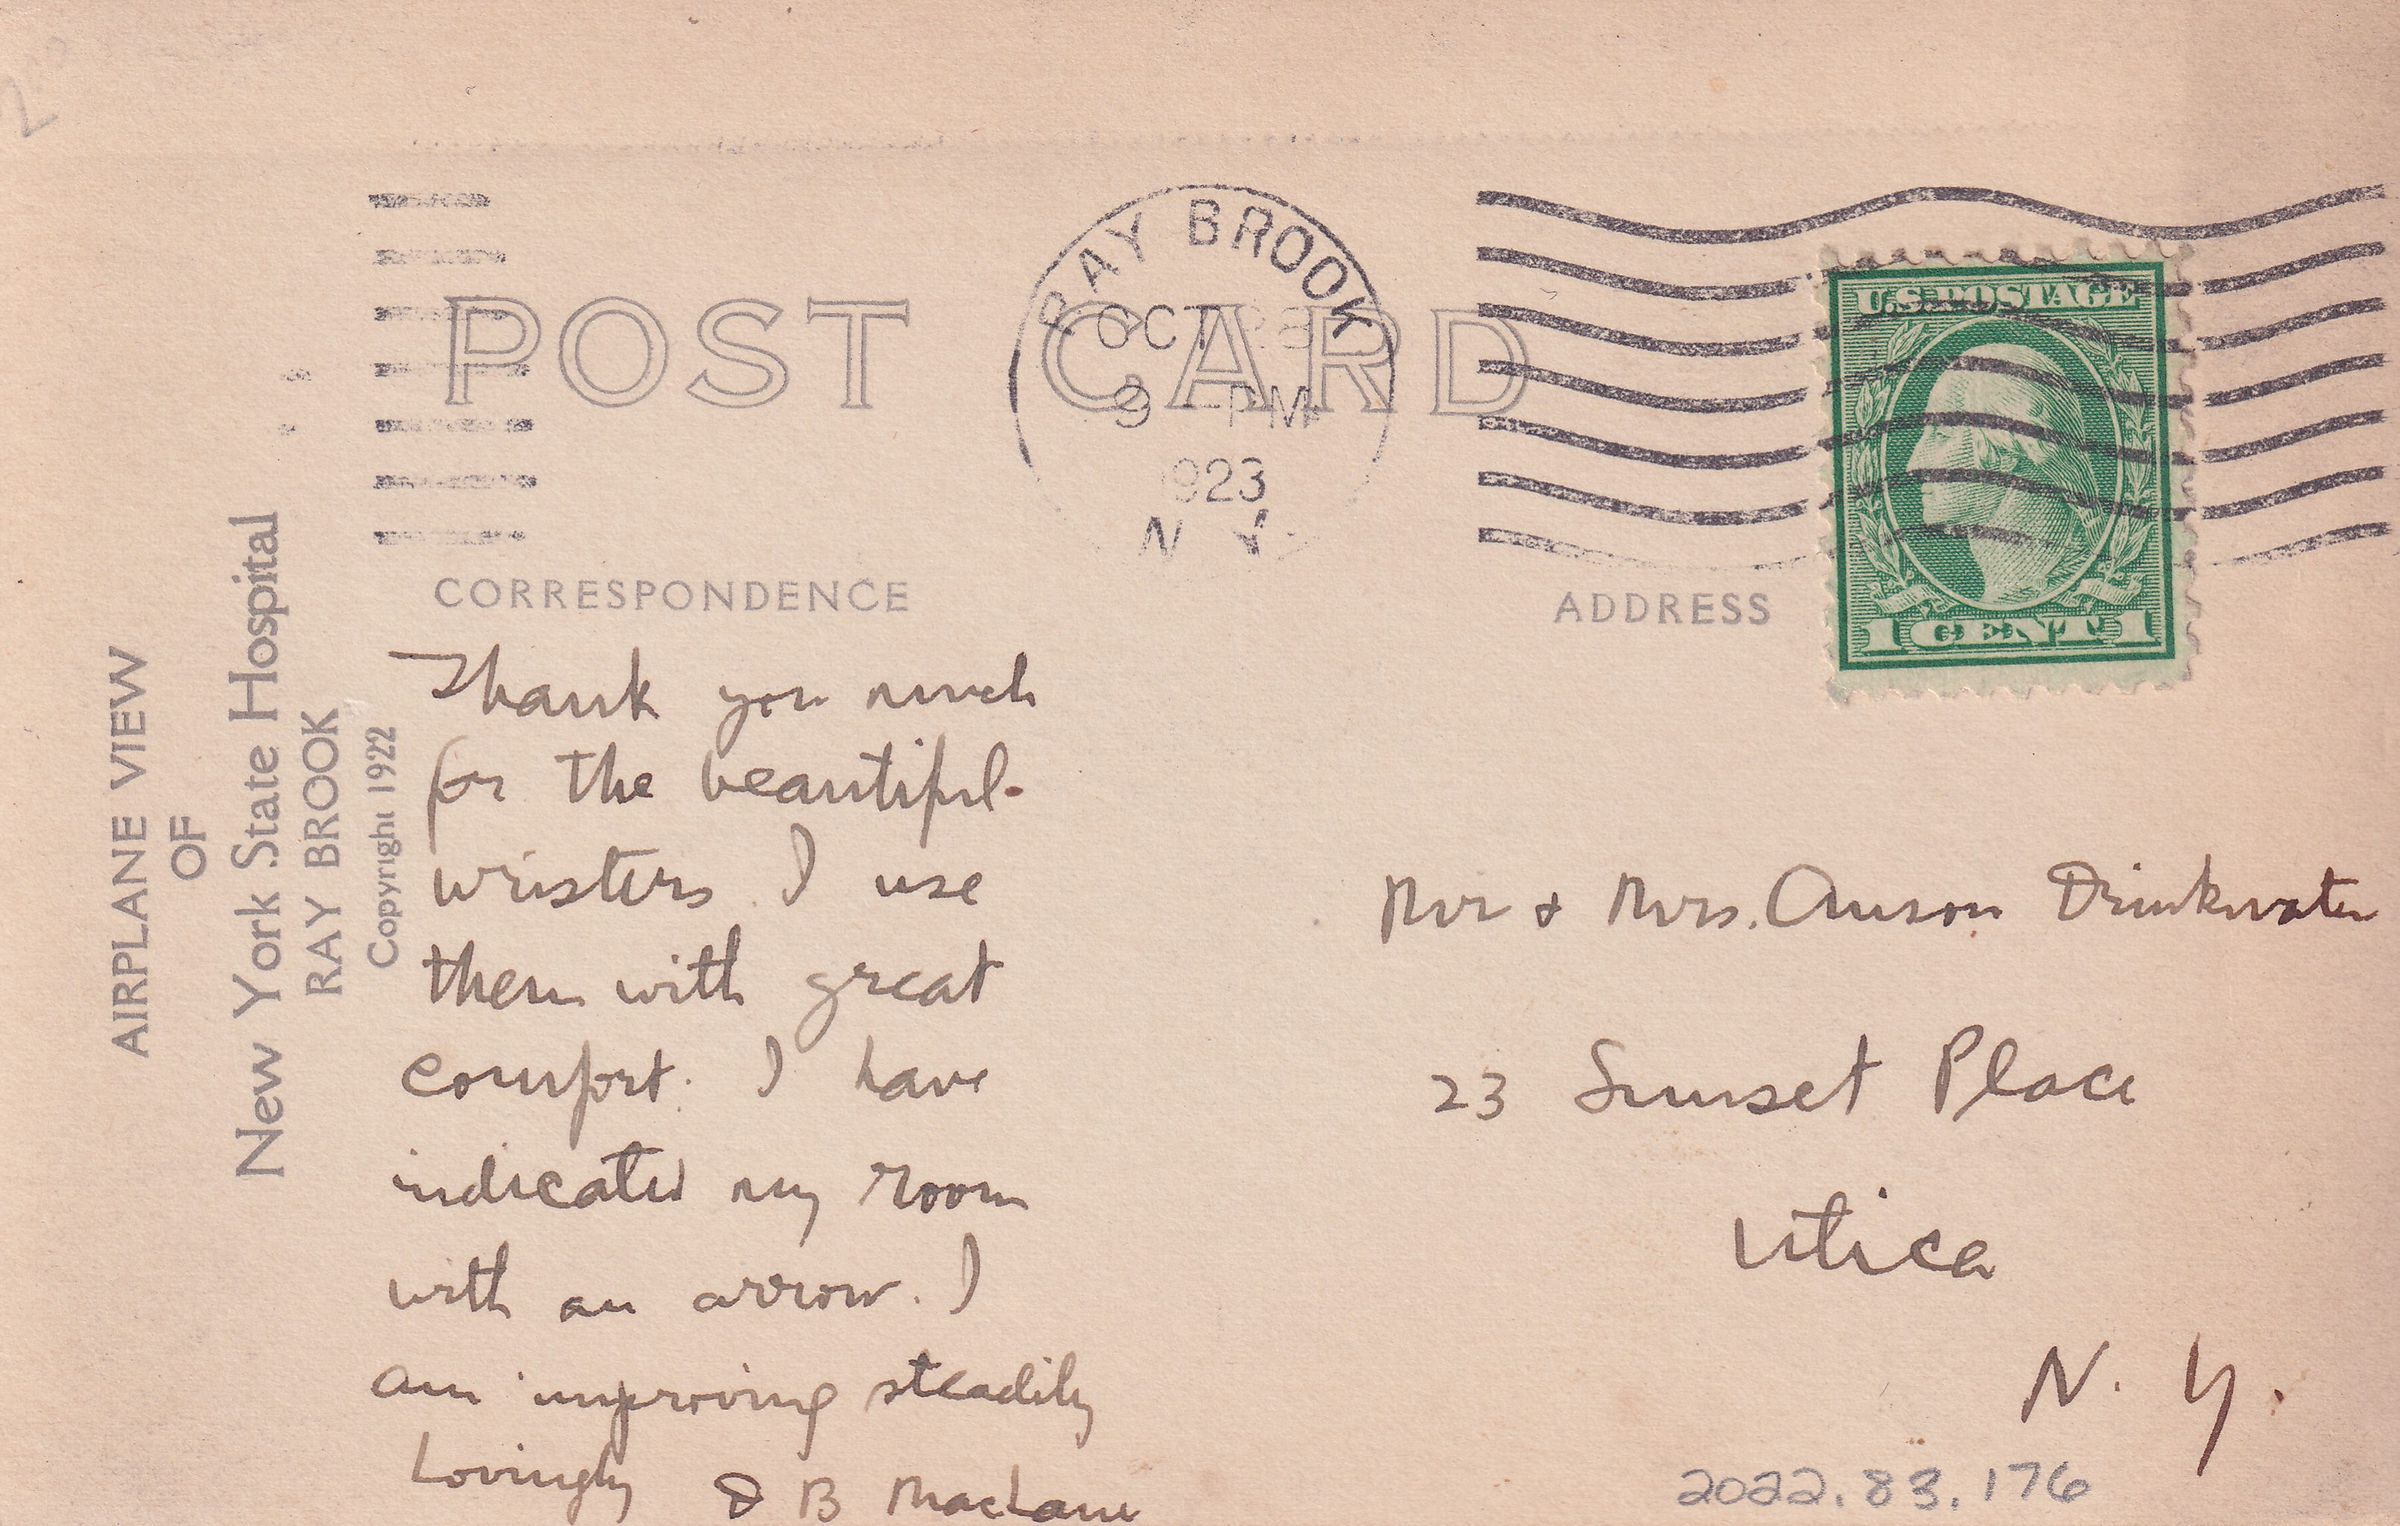 POST CARD
RAY BROOK
OCT 23
9 - PM
1923
N Y
U.S. POSTAGE
1 CENT 1
CORRESPONDENCE
ADDRESS
AIRPLANE VIEW
OF
New York State Hospital
RAY BROOK
Copyright 1922
Thank you much
for the beautiful
wristers. I use
them with great
comfort. I have
indicated my room
with an arrow. I
am improving steadily
Lovingly D B MacLane
Mr & Mrs. Anson Drinkwater
23 Sunset Place
Utica
N. Y.
2022.83.176